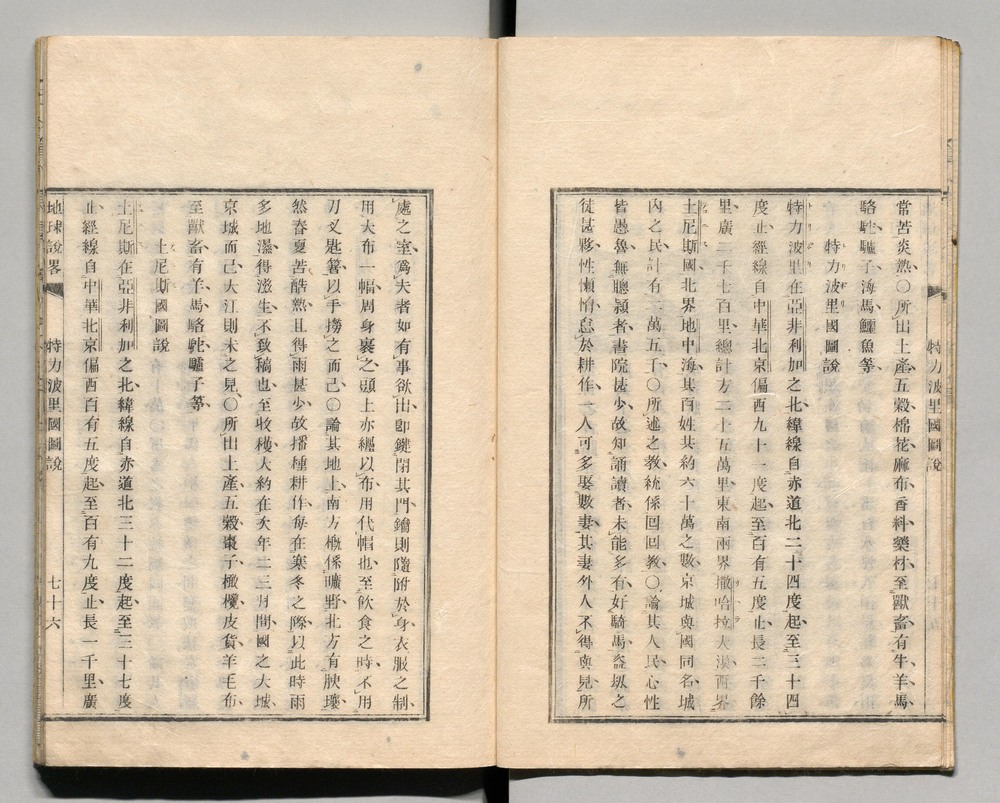 特力波里國圖說
常苦炎熱〇所出土產五穀棉花麻布香料藥材至獸畜有牛羊馬
駱駝驢子海馬鱷魚等
特力波里國圖說
特力波里在亞非利加之北緯線自赤道北二十四度起至三十四
度止經線自中華北京偏西九十一度起至百有五度止長二千餘
里廣二千七百里總計方二十五萬里東南兩界撒哈拉大漠西界
土尼斯國北界地中海其百姓其約六十萬之數京城與國同名城
內之民計有二萬五千〇所述之教統係回回教〇論其人民心性
皆愚魯無聰穎者書院甚少故知誦讀者未能多有好騎馬盜掠之
徒甚夥性懶惰怠於耕作一人可多娶數妻其妻外人不得與見所
處之室爲夫者如有事欲出即鍵閉其門鑰則隨附於身衣服之制
用大布一幅周身裹之頭上亦纏以布用代帽也至飲食之時不用
刀叉匙箸以手撈之而已〇論其地土南方概係曠野北方有腴壤
然春夏苦酷熱且得雨甚少故播種耕作每在寒冬之際以此時雨
多地濕得滋生不致槁也至收穫大約在次年二三月間國之大城
京城而已大江則未之見〇所出土產五穀棗子橄欖皮貨羊毛布
至獸畜有羊馬駱駝驢子等
土尼斯國圖說
土尼斯在亞非利加之北緯線自赤道北三十二度起至三十七度
止經線自中華北京偏西百有五度起至百有九度止長一千里廣
地球說畧 特力波里國圖說 七十六